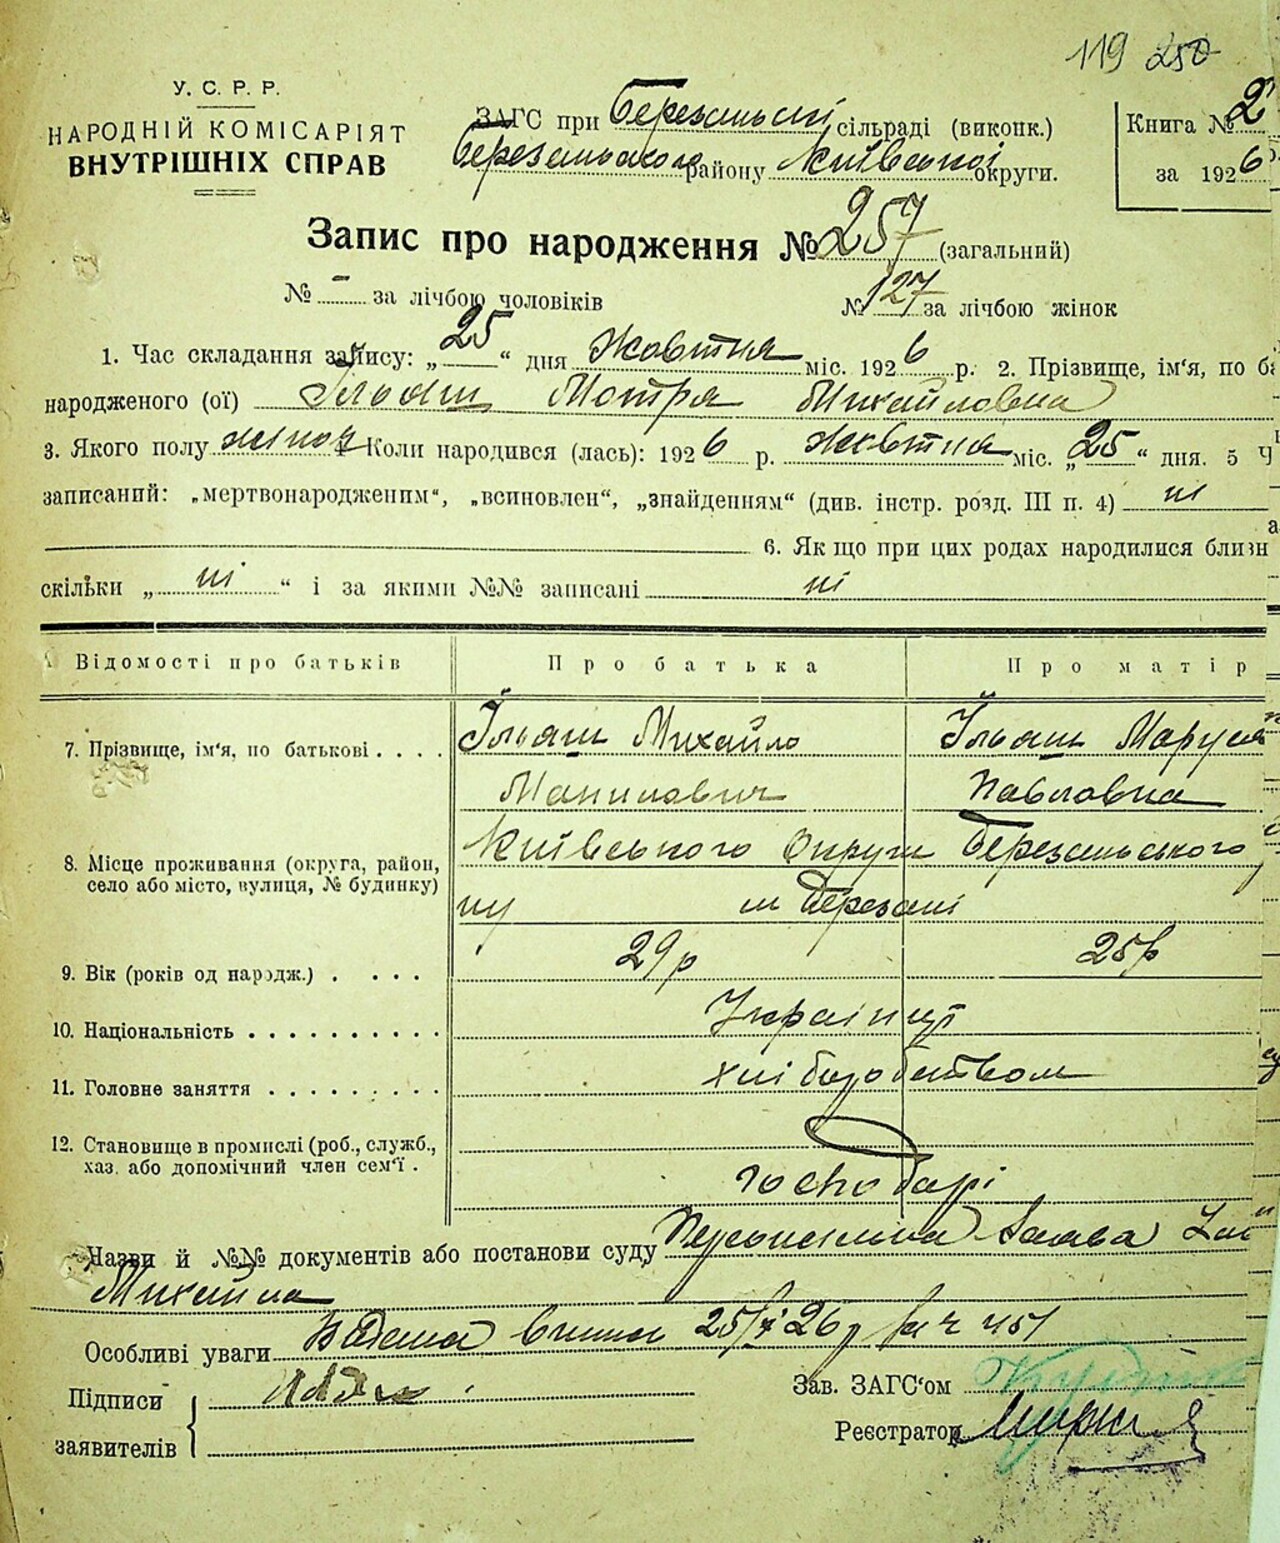 119 250
У. С. Р. Р.
НАРОДНІЙ КОМІСАРІЯТ
ВНУТРІШНІХ СПРАВ
ЗАГС при Березанській сільраді (виконк.)
Березанського району Київської округи.
Книга № 2
за 1926
Запис про народження № 257 (загальний)
№ - за лічбою чоловіків
№ 127 за лічбою жінок
1. Час складання запису: „25“ дня Жовтня міс. 1926 р. 2. Прізвище, ім'я, по ба
народженого (ої) Ільяш Мотря Михайловна
3. Якого полу жіноч 4 Коли народився (лась): 1926 р. Жовтня міс. „25“ дня. 5 Ч
записаний: „мертвонародженим“, „всиновлен“, „знайденням“ (див. інстр. розд. III п. 4) ні
6. Як що при цих родах народилися близн
скільки „ ні “ і за якими №№ записані ні
Відомості про батьків
Про батька
Про матір
7. Прізвище, ім'я, по батькові . . . .
Ільяш Михайло
Ільяш Маруся
Манилович
Павловна
8. Місце проживання (округа, район,
село або місто, вулиця, № будинку)
Київського Округи Березанського
ну м Березані
9. Вік (років од народж.) . . . .
29р
25р
10. Національність . . . . . . . . . .
Українці
11. Головне заняття . . . . . . . . .
хліборобством
12. Становище в промислі (роб., служб.,
хаз. або допомічний член сем'ї .
Господарі
Назви й №№ документів або постанови суду Персональна Заява
Михайла
Особливі уваги Видана 25/X 26 за ч 451
Підписи
заявителів
Зав. ЗАГС'ом
Реєстратор